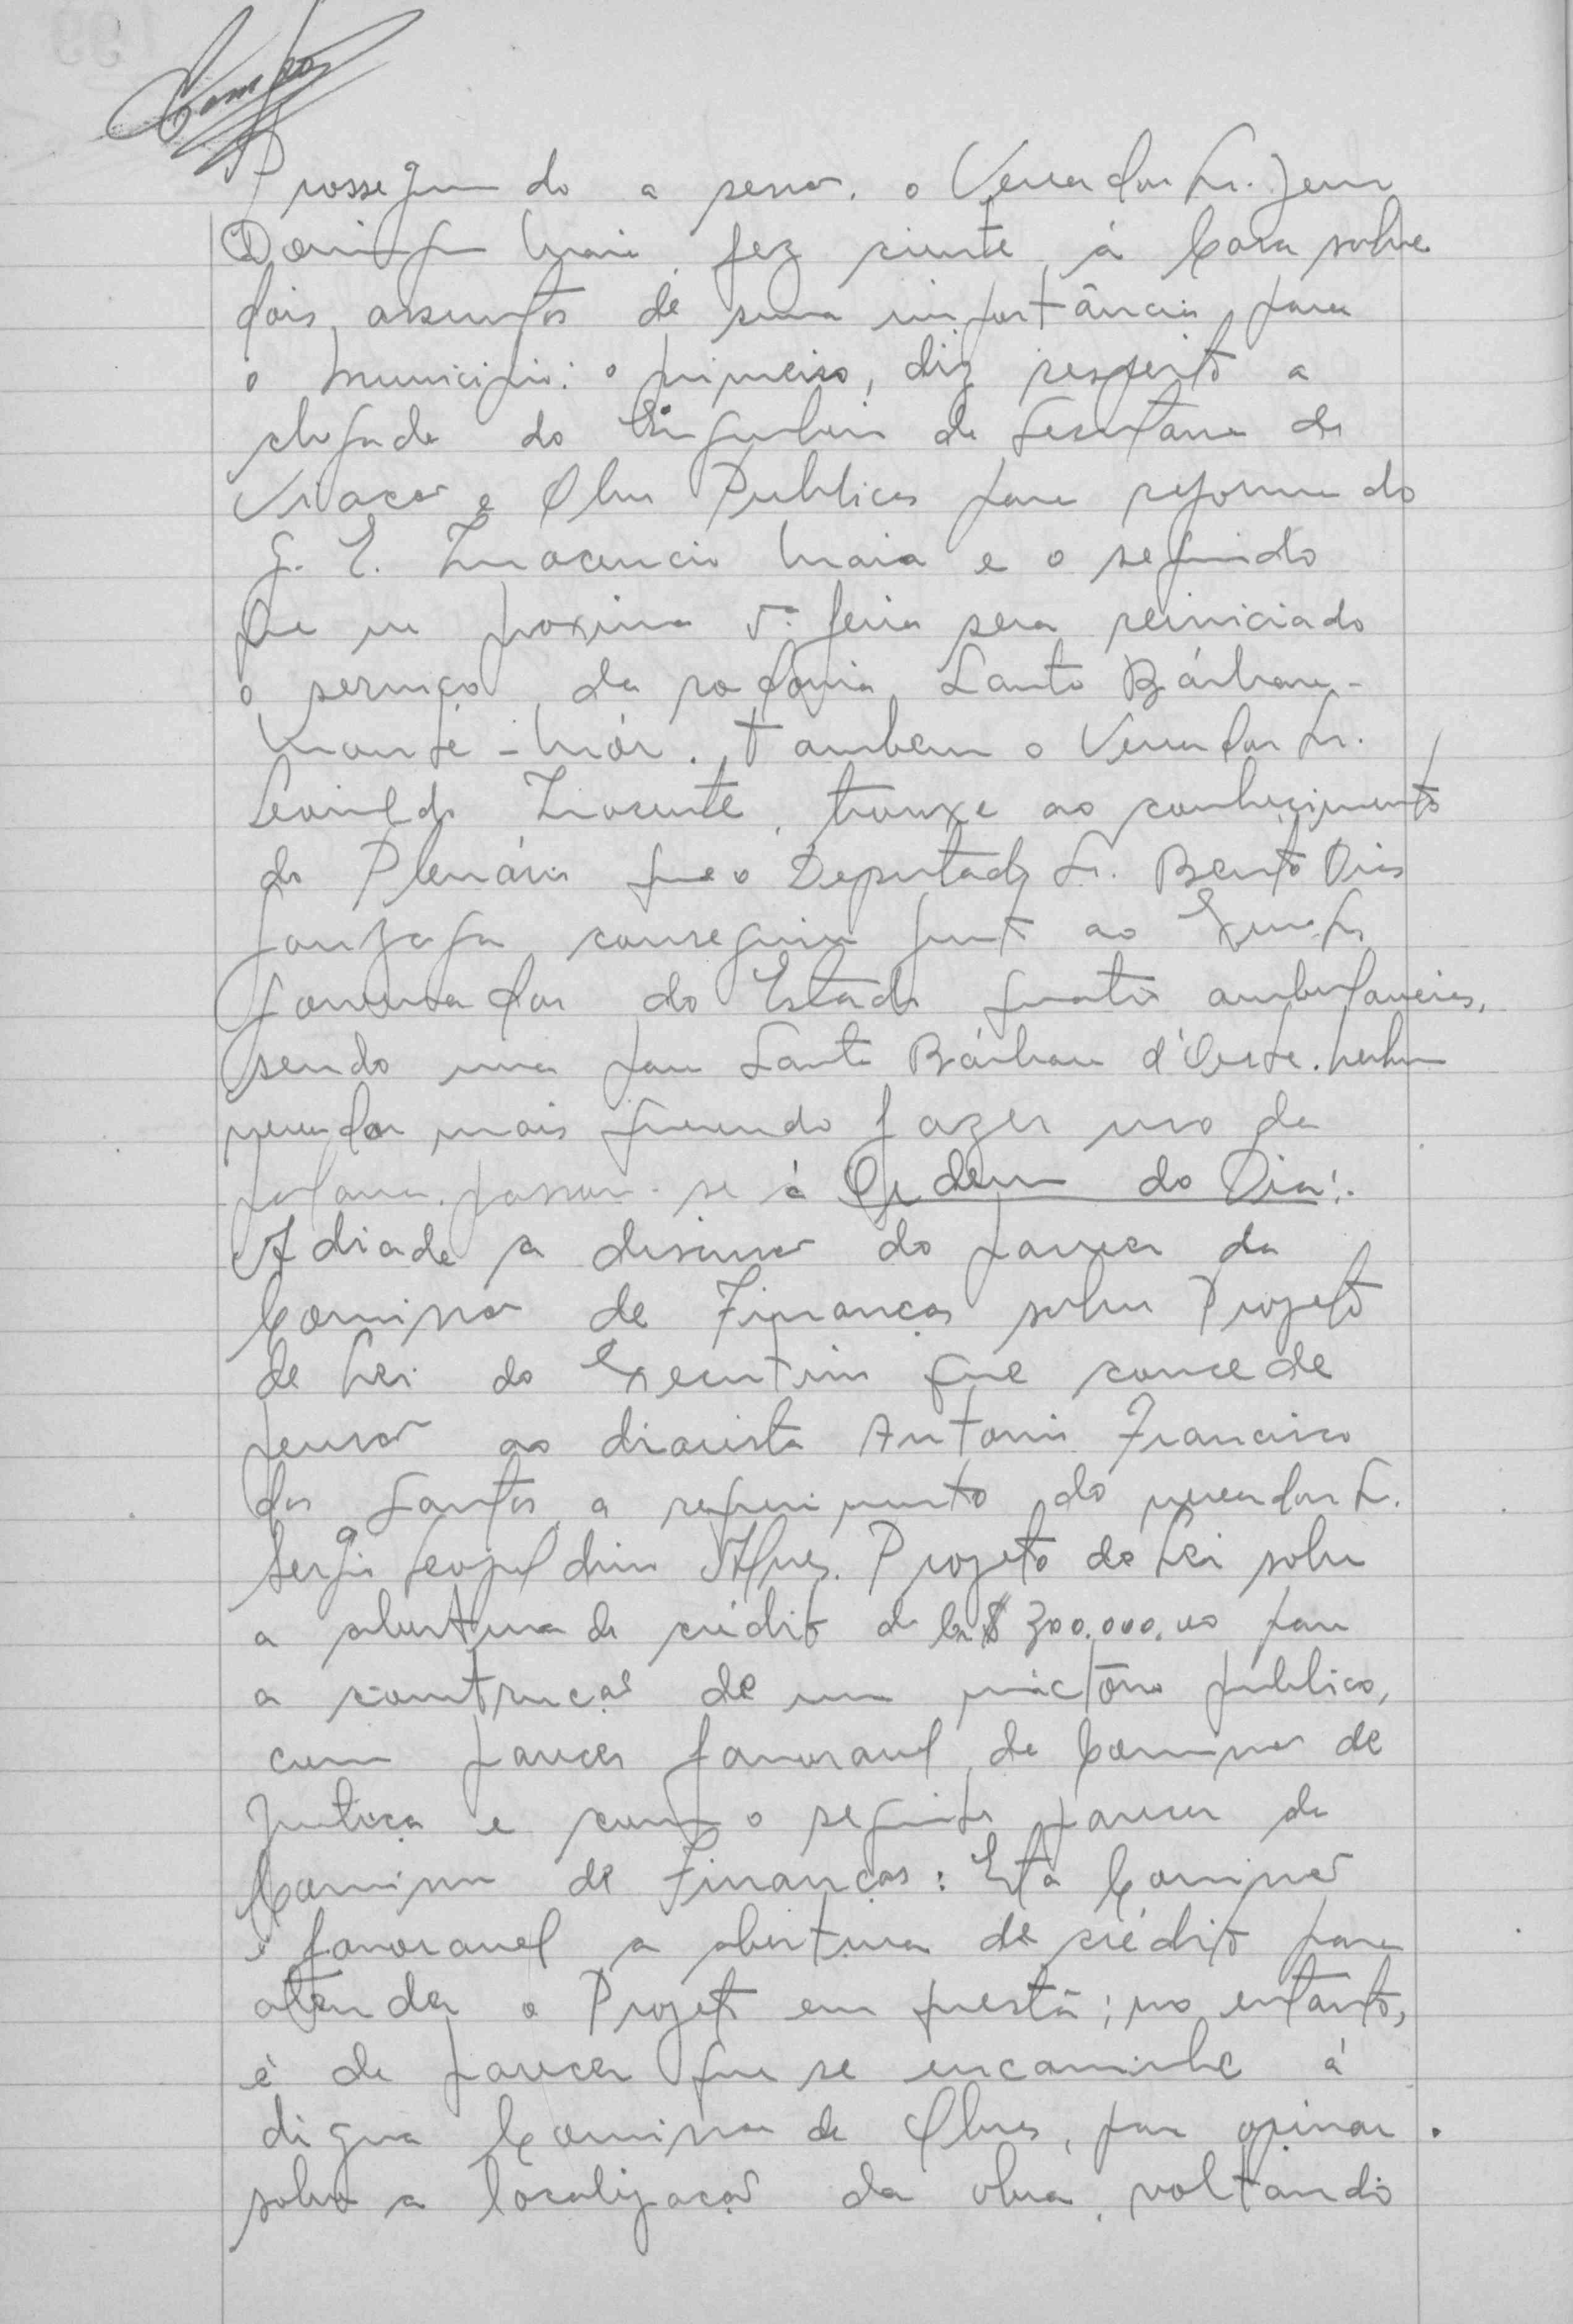 Prosseguindo a sessão, o Vereador Sr.
Domingos Maia, fez ciente, á Casa sobre
dois assuntos de suma importância para
o Municipio: o primeiro, diz respeito a
chegada do Engenheiro da Secretaria de
Viação e Obras Publicas para reforma do
G. E. Inocencio Maia e o segundo
que na proxima 5ª feira sera reiniciado
o serviço da rodovia Santa Bárbara-
Monte-Mór. Tambem o Vereador Sr.
Leonildo Inocente, trouxe ao conhecimento
do Plenário que o Deputado Sr. Bento Dias
Gonzaga conseguiu junto ao Exmo. Sr.
Governador do Estado quatro ambulancias,
sendo uma para Santa Bárbara d'Oeste. Nenhum
vereador mais querendo fazer uso da
palavra, passou-se à Ordem do Dia:.
Adiada a discussão do parecer da
Comissão de Finanças sobre Projeto
de Lei do Executivo que concede
pensão ao diarista Antonio Francisco
dos Santos, a requerimento do vereador Sr.
Sergio Leopoldino Alves. Projeto de Lei sobre
a abertura de crédito de Cr$ 300.000,00 para
a construção de um mictório publico,
com parecer favoravel da Comissão de
Justiça e com o seguinte parecer da
Comissão de Finanças: Esta Comissão
é favoravel a abertura de crédito para
atender o Projeto em questão; no entanto,
é de parecer que se encaminhe á
digna Comissão de Obras, para opinar
sobre a localização da obra, voltando